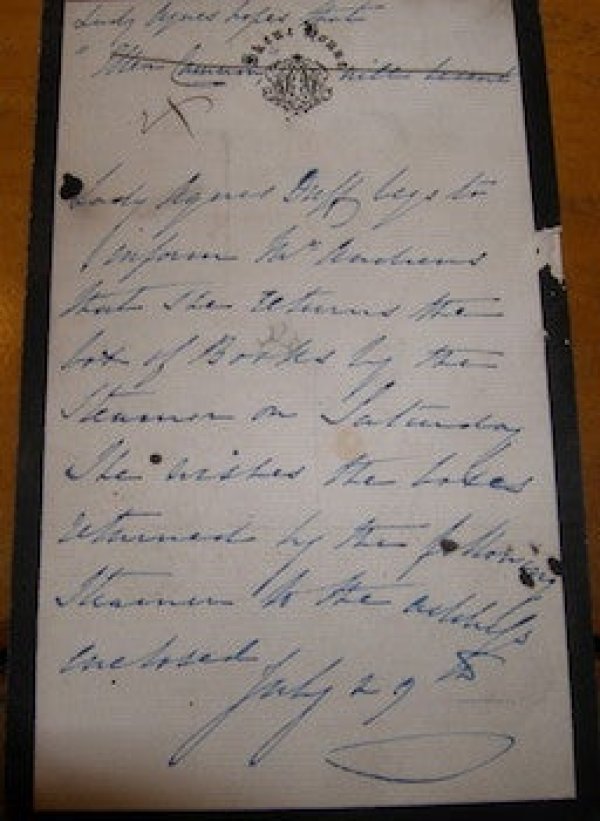 Lady Agnes hopes that
" Ellen Cameron will be sent
Skene House
Lady Agnes Duff begs to
inform Mr Andrews
that she returns the
box of Books by the
Steamer on Saturday
She wishes the boxes
returned by the following
Steamer to the
enclosed
July 29th